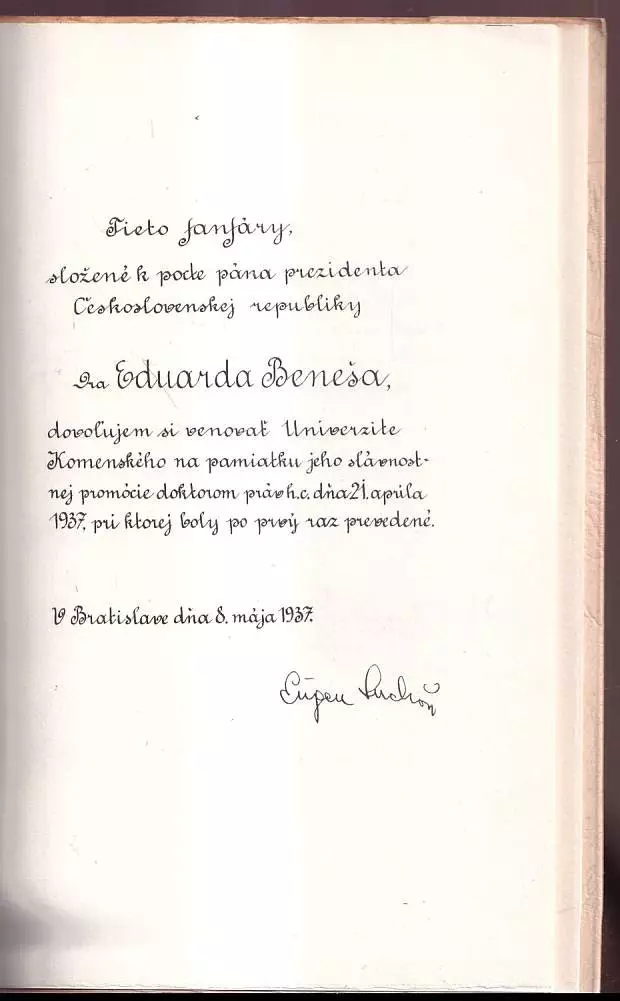 Tieto fanfáry,
složené k pocte pána prezidenta
Československej republiky
Dra Eduarda Beneša,
dovoľujem si venovať Univerzite
Komenského na pamiatku jeho slávnost-
nej promócie doktorom práv h.c. dňa 21. apríla
1937, pri ktorej boly po prvý raz prevedené.
V Bratislave dňa 8. mája 1937.
Eugen Suchoň